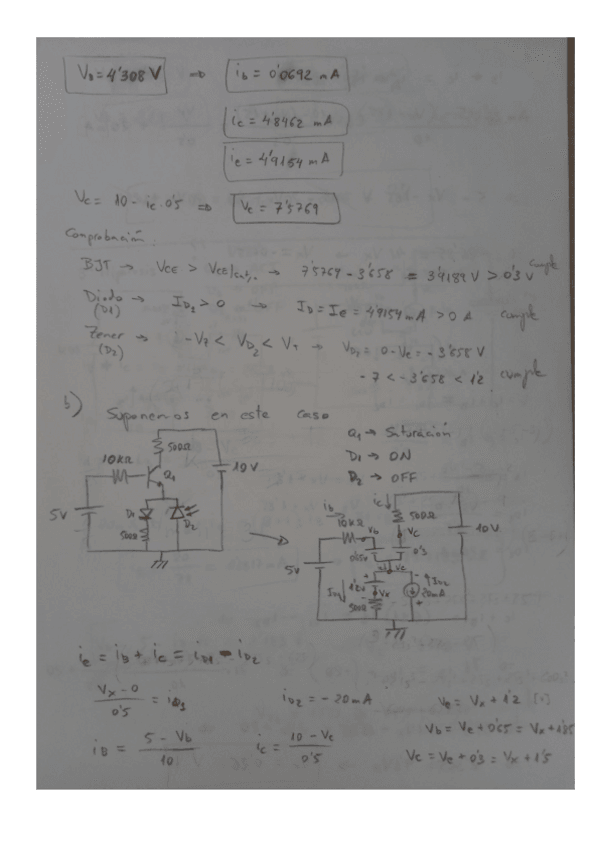 V_b = 4'308 V ⇒ i_b = 0'0692 mA
i_c = 4'8462 mA
i_e = 4'9154 mA
V_c = 10 - i_c · 0'5 ⇒ V_c = 7'5769
Comprobación:
BJT → V_CE > V_CE/sat → 7'5769 - 3'658 = 3'9189 V > 0'3 V cumple
Diodo → I_D1 > 0 → I_D = I_e = 4'9154 mA > 0 A cumple
(D1)
Zener → -V_z < V_D2 < V_T → V_D2 = 0 - V_e = -3'658 V
(D2)
-7 < -3'658 < 1'2 cumple
b) Suponemos en este caso
Q1 → Saturación
D1 → ON
D2 → OFF
500Ω
10KΩ
Q1
10V
5V
D1
D2
500Ω
i_c
500Ω
i_b
10KΩ
V_b
V_c
10V
0'3
V_e
5V
I_D1
1'2V
V_x
I_D2
20mA
500Ω
i_e = i_B + i_c = i_D1 - i_D2
(V_x - 0) / 0'5 = i_D1
i_D2 = -20 mA
V_e = V_x + 1'2 [V]
i_B = (5 - V_b) / 10
i_c = (10 - V_c) / 0'5
V_b = V_e + 0'65 = V_x + 1'85
V_c = V_e + 0'3 = V_x + 1'5